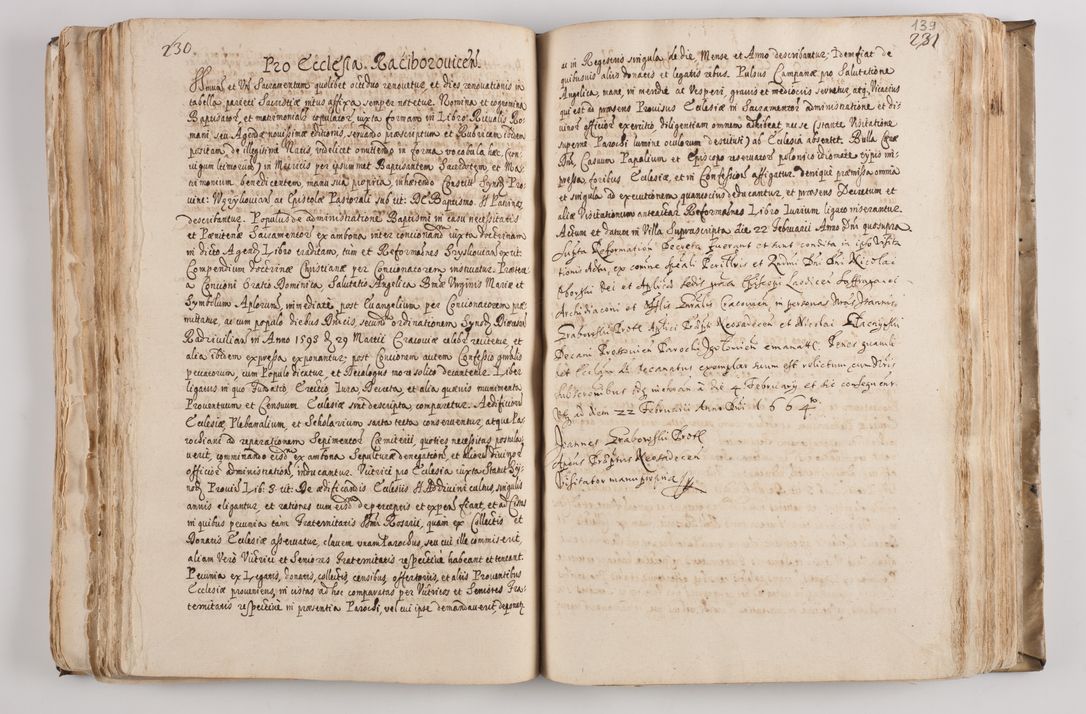 230
Pro Ecclesia Raciborovicen.
Annual et Vñl Sacramentum quolibet octiduo renovetur, et dies renovationis in
tabella parieti Sacristiæ intus affixa semper notetur. Nomina et cognomina
Baptisator, et matrimonialr copulator iuxta formam in Libro Ritualis Ro-
mani seu Agendæ novissimæ editionis, servando præscriptum et Rubricam ibidem
positam de Illegitime Natis videlicet omittendo in forma vocabula hæc (con-
iugum legitimorum) in Matricis per ipsummet Baptisantem Sacerdotem, et Ma-
trimonium benedicentem, manu sua propria, inhærendo Constit: Synod: Pro
vinc: Wezykovian ac Epistolæ Pastorali sub tit: De Baptismo. §. Patrinos
describantur. Populus de administratione Baptismi in casu necessitatis
et Pœnitentiæ Sacramentor ex ambona inter concionand iuxta doctrinam
in dicto Agend: Libro traditam, tum et Reformatnes Szyskovian ex tit:
Compendium doctrinæ Christianæ per Concionatorem instruatur. Præterea
a Concione Oratio Dominica Salutatio Angelica Bmæ Virginis Mariæ et
Symbolum Aplorum, immediate post Evangelium per Concionatorem præ-
mittatur, ac cum populo diebus Dnicis, secund ordinationem Synod: Diœcesan
Radziviliian in Anno 1593 d 29 Martii Cracoviæ celebr recitetur, et
alia ibidem expressa exponantur; post Concionem autem Confessio gnralis
peccatorum, cum Populo dicatur, et Decalogus more solito decantetur. Liber
ligatus in quo Fundatio, Erectio, Iura, Decreta, et alia quævis munimenta
Proventuum et Censuum Ecclesiæ sint descripta, comparetur. Ædificium
Ecclesiæ Plebanalium, et Scholarium sarta tecta conserventur, atque Pa-
rochiani ad reparationem Sepimentor Cœmiterii, quoties necessitas postula
verit, comminando eisd ex ambona Sepulturæ denegation, et alior divinor
officior administration, inducantur. Vitrici pro Ecclesia iuxta Statut Sy-
nod: Provin: Lib: 3. tit: De ædificandis Ecclesiis §. Ad divini cultus, singulis
annis eligantur, et rationes cum eisd de perceptis et expen fiant, et ad Cistas
in quibus pecunia tam Fraternitatis SSmi Rosarii, quam ex Collectis et
Donatis Ecclesiæ asservatur, clavem unam Parochus, seu cui ille commiserit,
aliam Vero Vitrici et Seniores Fraternitatis respective habeant et teneant.
Pecunia ex Legatis, donatis, collectis, censibus, offertoriis, et aliis Proventibus
Ecclesiæ proveniens, in cistas ad hoc comparatas per Vitricos et Seniores Fra-
ternitatis respective in præsentia Parochi, vel cui ipse demandaverit, deponatr
139
231
ac in Regestris singula de die, Mense et Anno describantur; Idem fiat de
quibusvis aliis donatis et legatis rebus. Pulsus Campanæ pro Salutatione
Angelica, mane, in meridie ac Vesperi, gravis et mediocris servetur, atq; Vicarius
qui est de præsens Provisus Ecclesiæ in Sacramentor administratione, et di-
vinor officior exercitio, diligentiam omnem adhibeat nec se (stante Visitatione
superne Parochi lumine oculorum destituti) ab Ecclesia absentet. Bulla Cœnæ
Dni, Casuum Papalium et Episcopo reservator polonico idiomate typis im-
pressa, foribus Ecclesiæ, et in Confession affigatur. denique præmissa omnia
et singula ad executionem quantocius deducantur, et præsens Decretum et
aliæ Visitationum anteactar Reformatnes Libro Iurium ligato inserantur.
Actum et datum in Villa Suprascripta die 22 Februarii Anno Dni quo supra
Juxta Reformation Decreta fuerant et sunt condita in ipso Visita
tionis Actu, ex comne spâli Perillris et Rndmi Dni Dni Nicolai
Oborski Dei et Aplicæ Sedis gratia Episcopi Laodicen Suffraganei
Archidiaconi et Offlis Gnralis Cracovien, in personas Nras Ioannis
Grabowski Proth: Aplici Præpt. Keosdecen et Nicolai
Decani Prossovien Parochi Igolomien emanatæ. Penes quamli
bet Ecclam decanatus exemplar suum est relictum, cum diuis
subscriptionibus inchoan a die 4 Februarij et sic consequenr
usq; ad diem 22 Februarii Anno Dni 1664to.
Joannes Grabowski Proth
Aplicus Præptus Keosdecen
Visitator manu propria